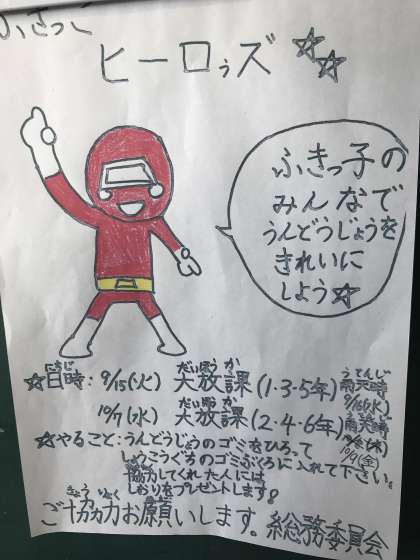 ふきっこ
ヒーロぅズ☆☆
ふきっ子の
みんなで
うんどうじょうを
きれいに
しよう☆
☆日時：9/15(火) 大放課(1・3・5年) 雨天時
9/16(水)
10/7(水) 大放課(2・4・6年) 雨天時
10/9(金)
☆やること：うんどうじょうのゴミをひろって
しょうこうぐちのゴミぶくろに入れて下さい。
協力してくれた人には
しおりをプレゼントします!
ご協力お願いします。総務委員会